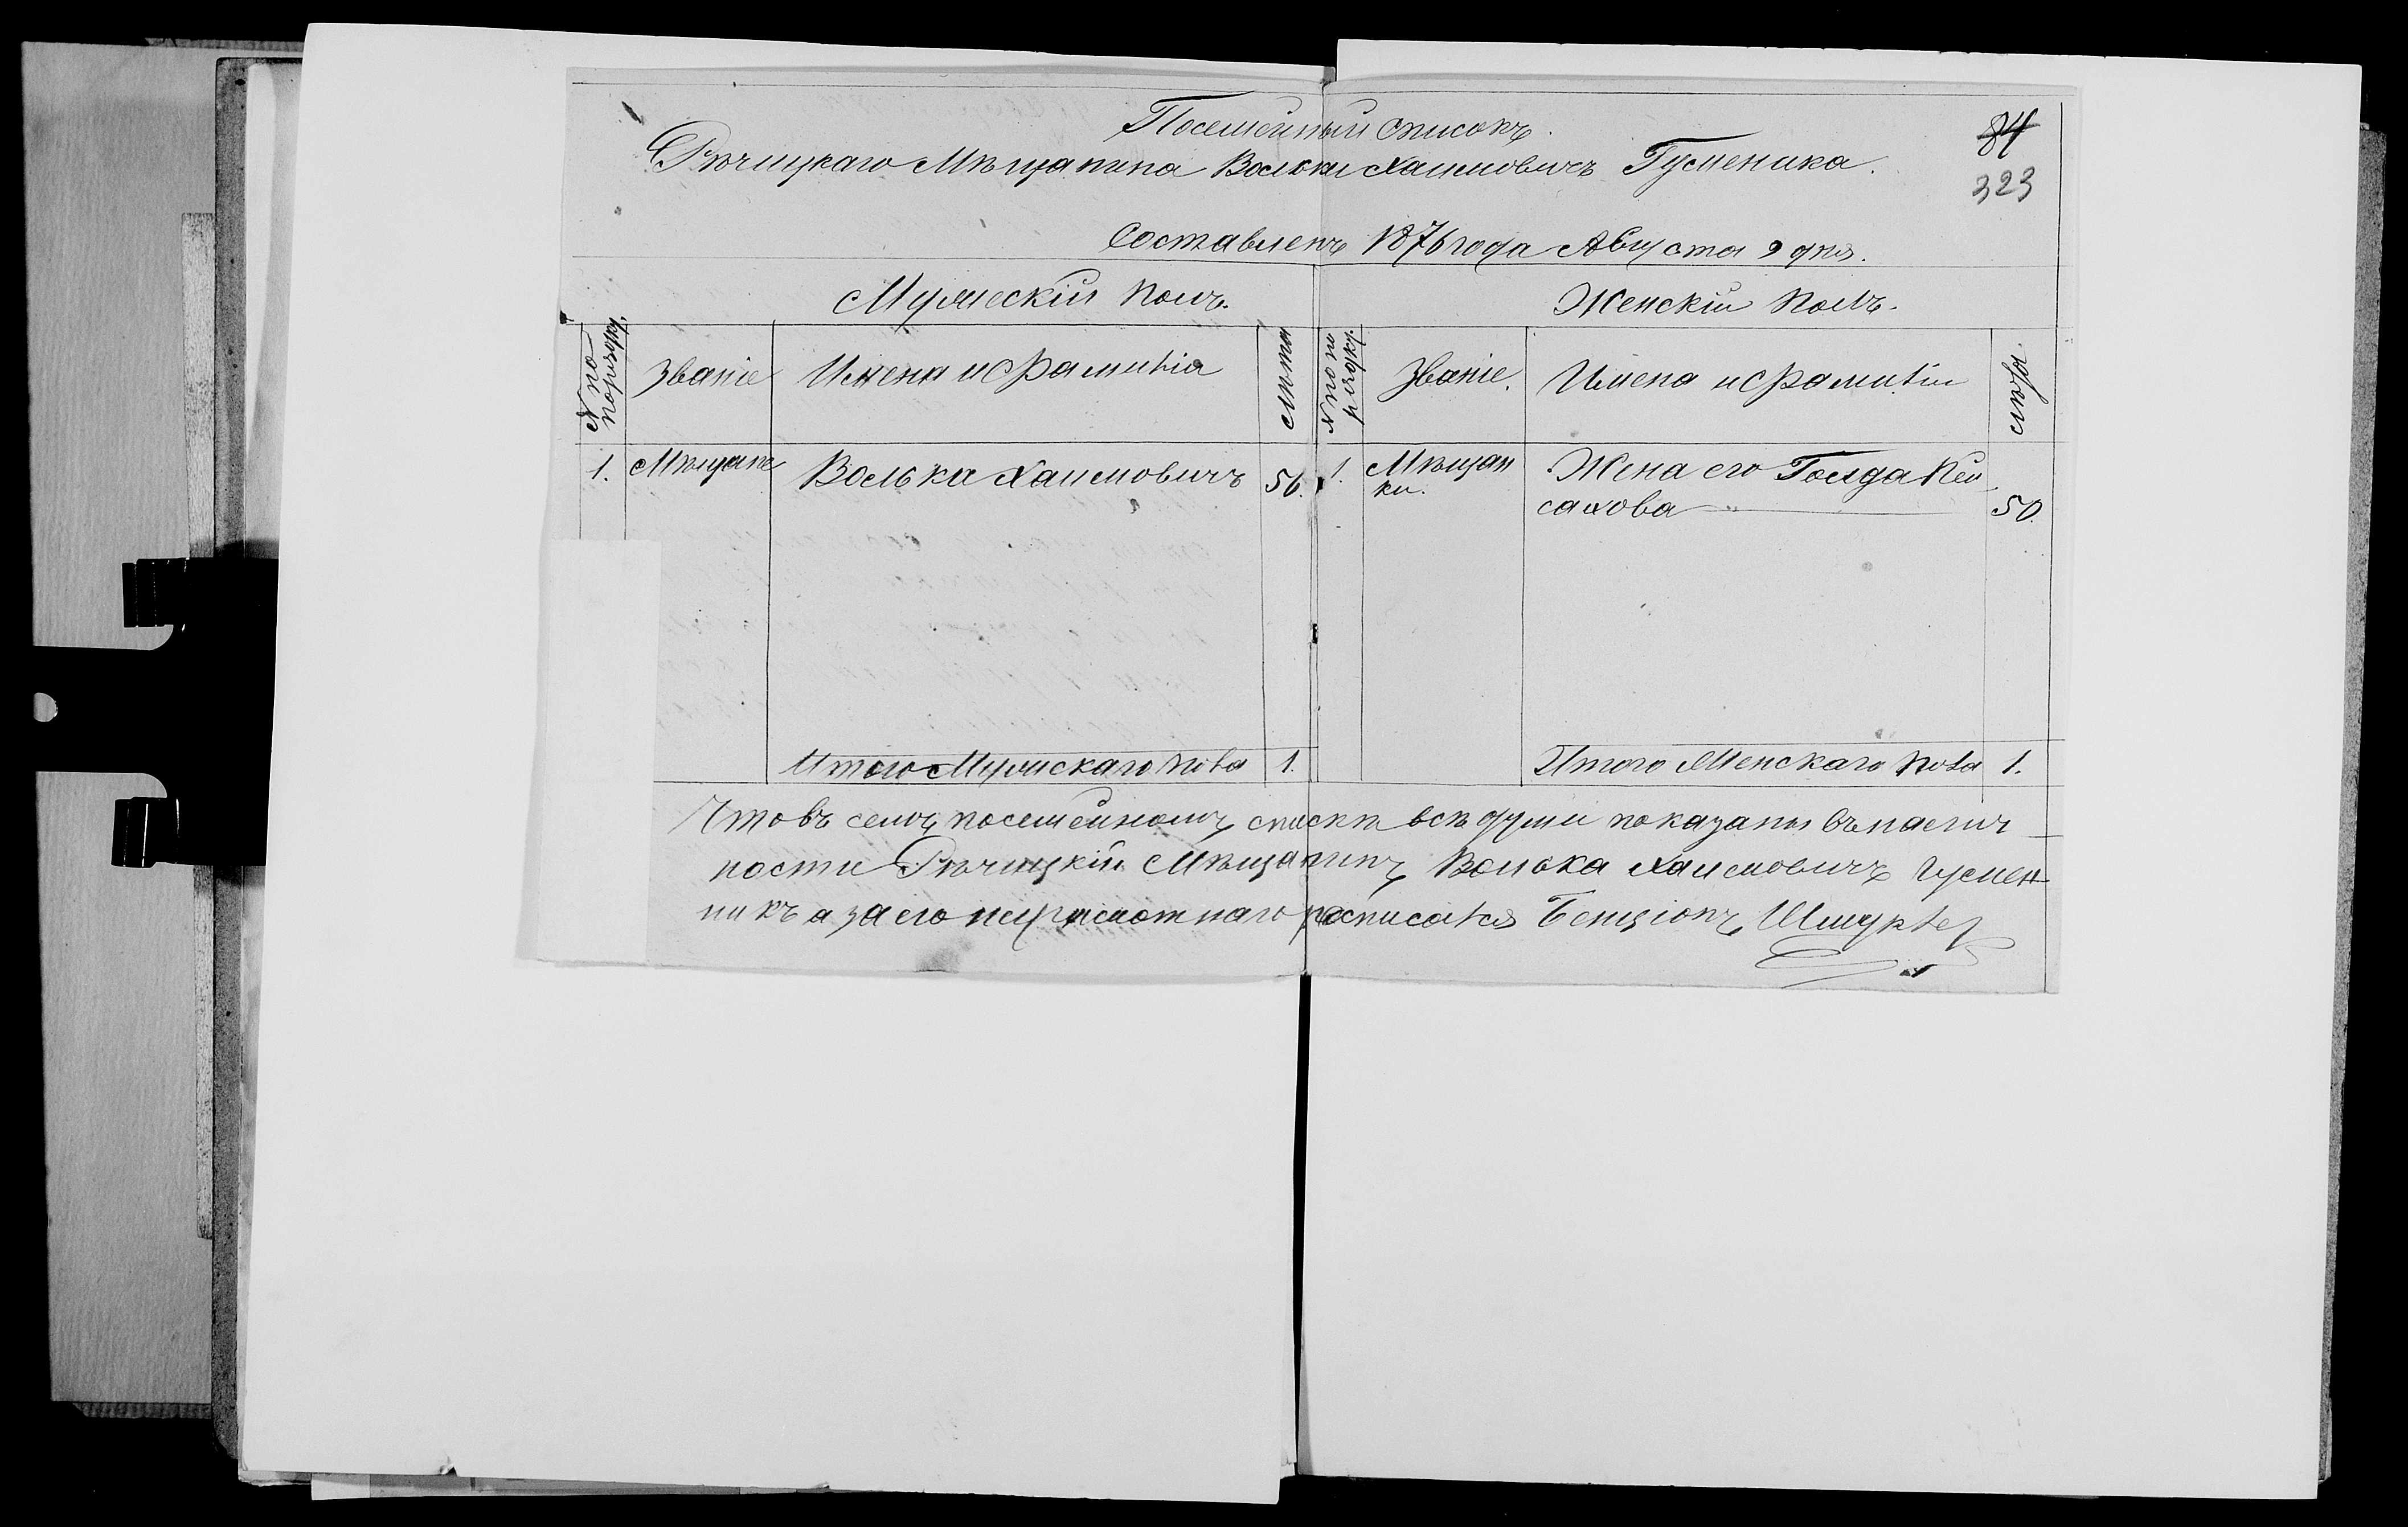 Посемейный списокъ.
84
Рѣчицкаго Мѣщанина Вольки Хаимовичъ Гусменика.
323
Составленъ 1876 года Августа 9 дня.
Мужескій полъ.
Женскій полъ.
№ по порядку.
Званіе
Имена и фамилія
Лѣта
№ по порядку.
Званіе.
Имена и фамиліи
Лѣта.
1.
Мѣщане
Волька Хаимовичъ
56.
1.
Мѣщан
ки.
Жена его Голда Пей
сахова
50.
Итого Мужескаго пола
1.
Итого Женскаго пола
1.
Что въ семъ посемейномъ спискѣ всѣ души показаны въ налич
ности Рѣчицкій Мѣщанинъ Волька Хаимовичъ Гусмен
никъ а за его неграмотнаго росписался Бенціонъ